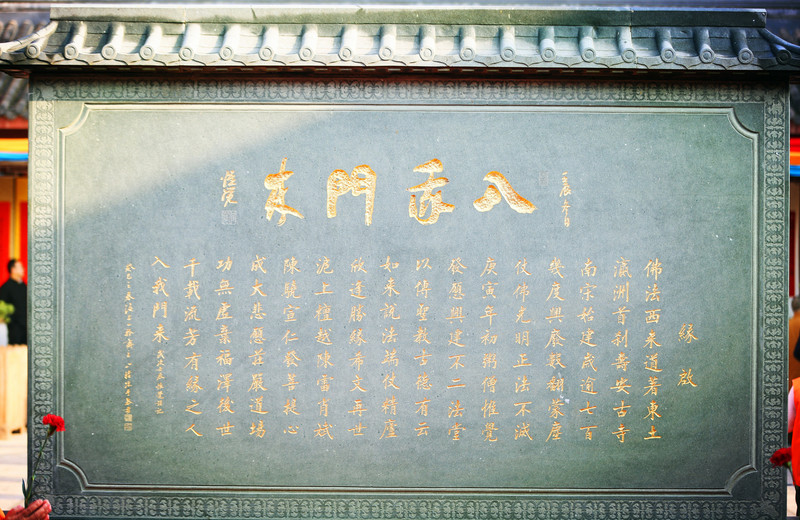 入我門來
緣啟
佛法西來道著東土
瀛洲首剎壽安古寺
南宗始建歲逾七百
幾度興廢毀翻蒙塵
仗佛光明正法不滅
庚寅年初粥僧惟覺
發愿興建不二法堂
以傳聖教古德有云
如來說法揚仗精廬
欣逢勝緣希文再世
滬上檀越陳富肖斌
陳驍宣仁發菩提心
成大悲愿莊嚴道場
功無虛棄福澤後世
千載流芳有緣之人
入我門來